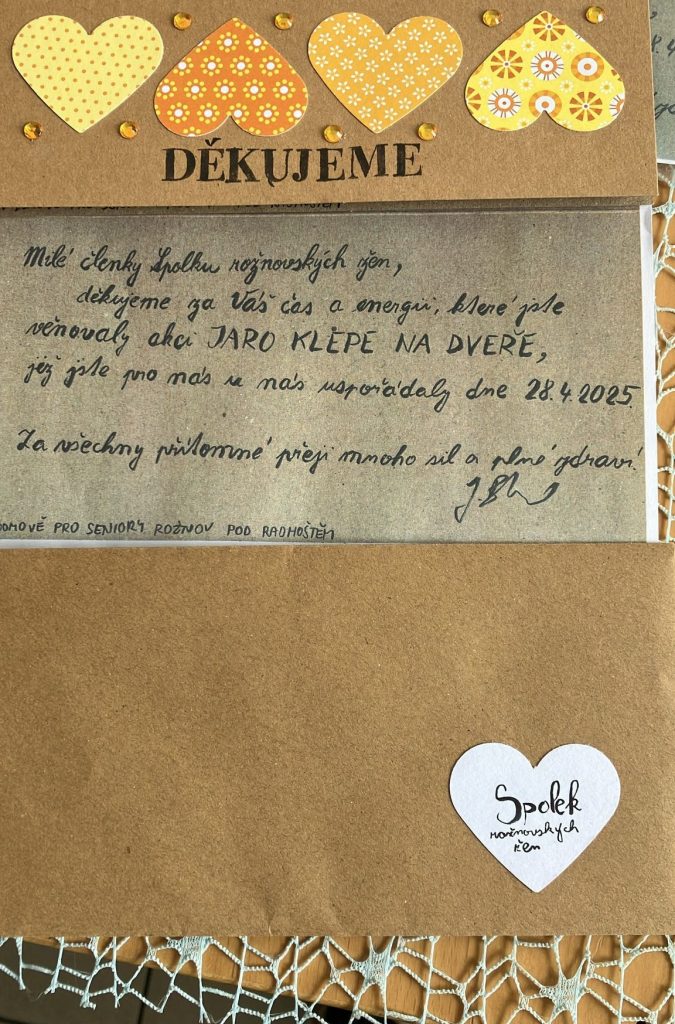 DĚKUJEME
Milé členky Spolku rožnovských žen,
děkujeme za Váš čas a energii, které jste
věnovaly akci JARO KLEPE NA DVEŘE,
jež jste pro nás u nás uspořádaly dne 28.4.2025.
Za všechny přítomné přeji mnoho sil a plné zdraví!
DOMOVĚ PRO SENIORY ROŽNOV POD RADHOŠTĚM
Spolek
rožnovských
žen